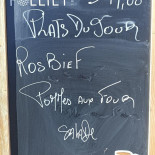 Plats Du Jour
Ros Bief
Pommes aux Four
salade